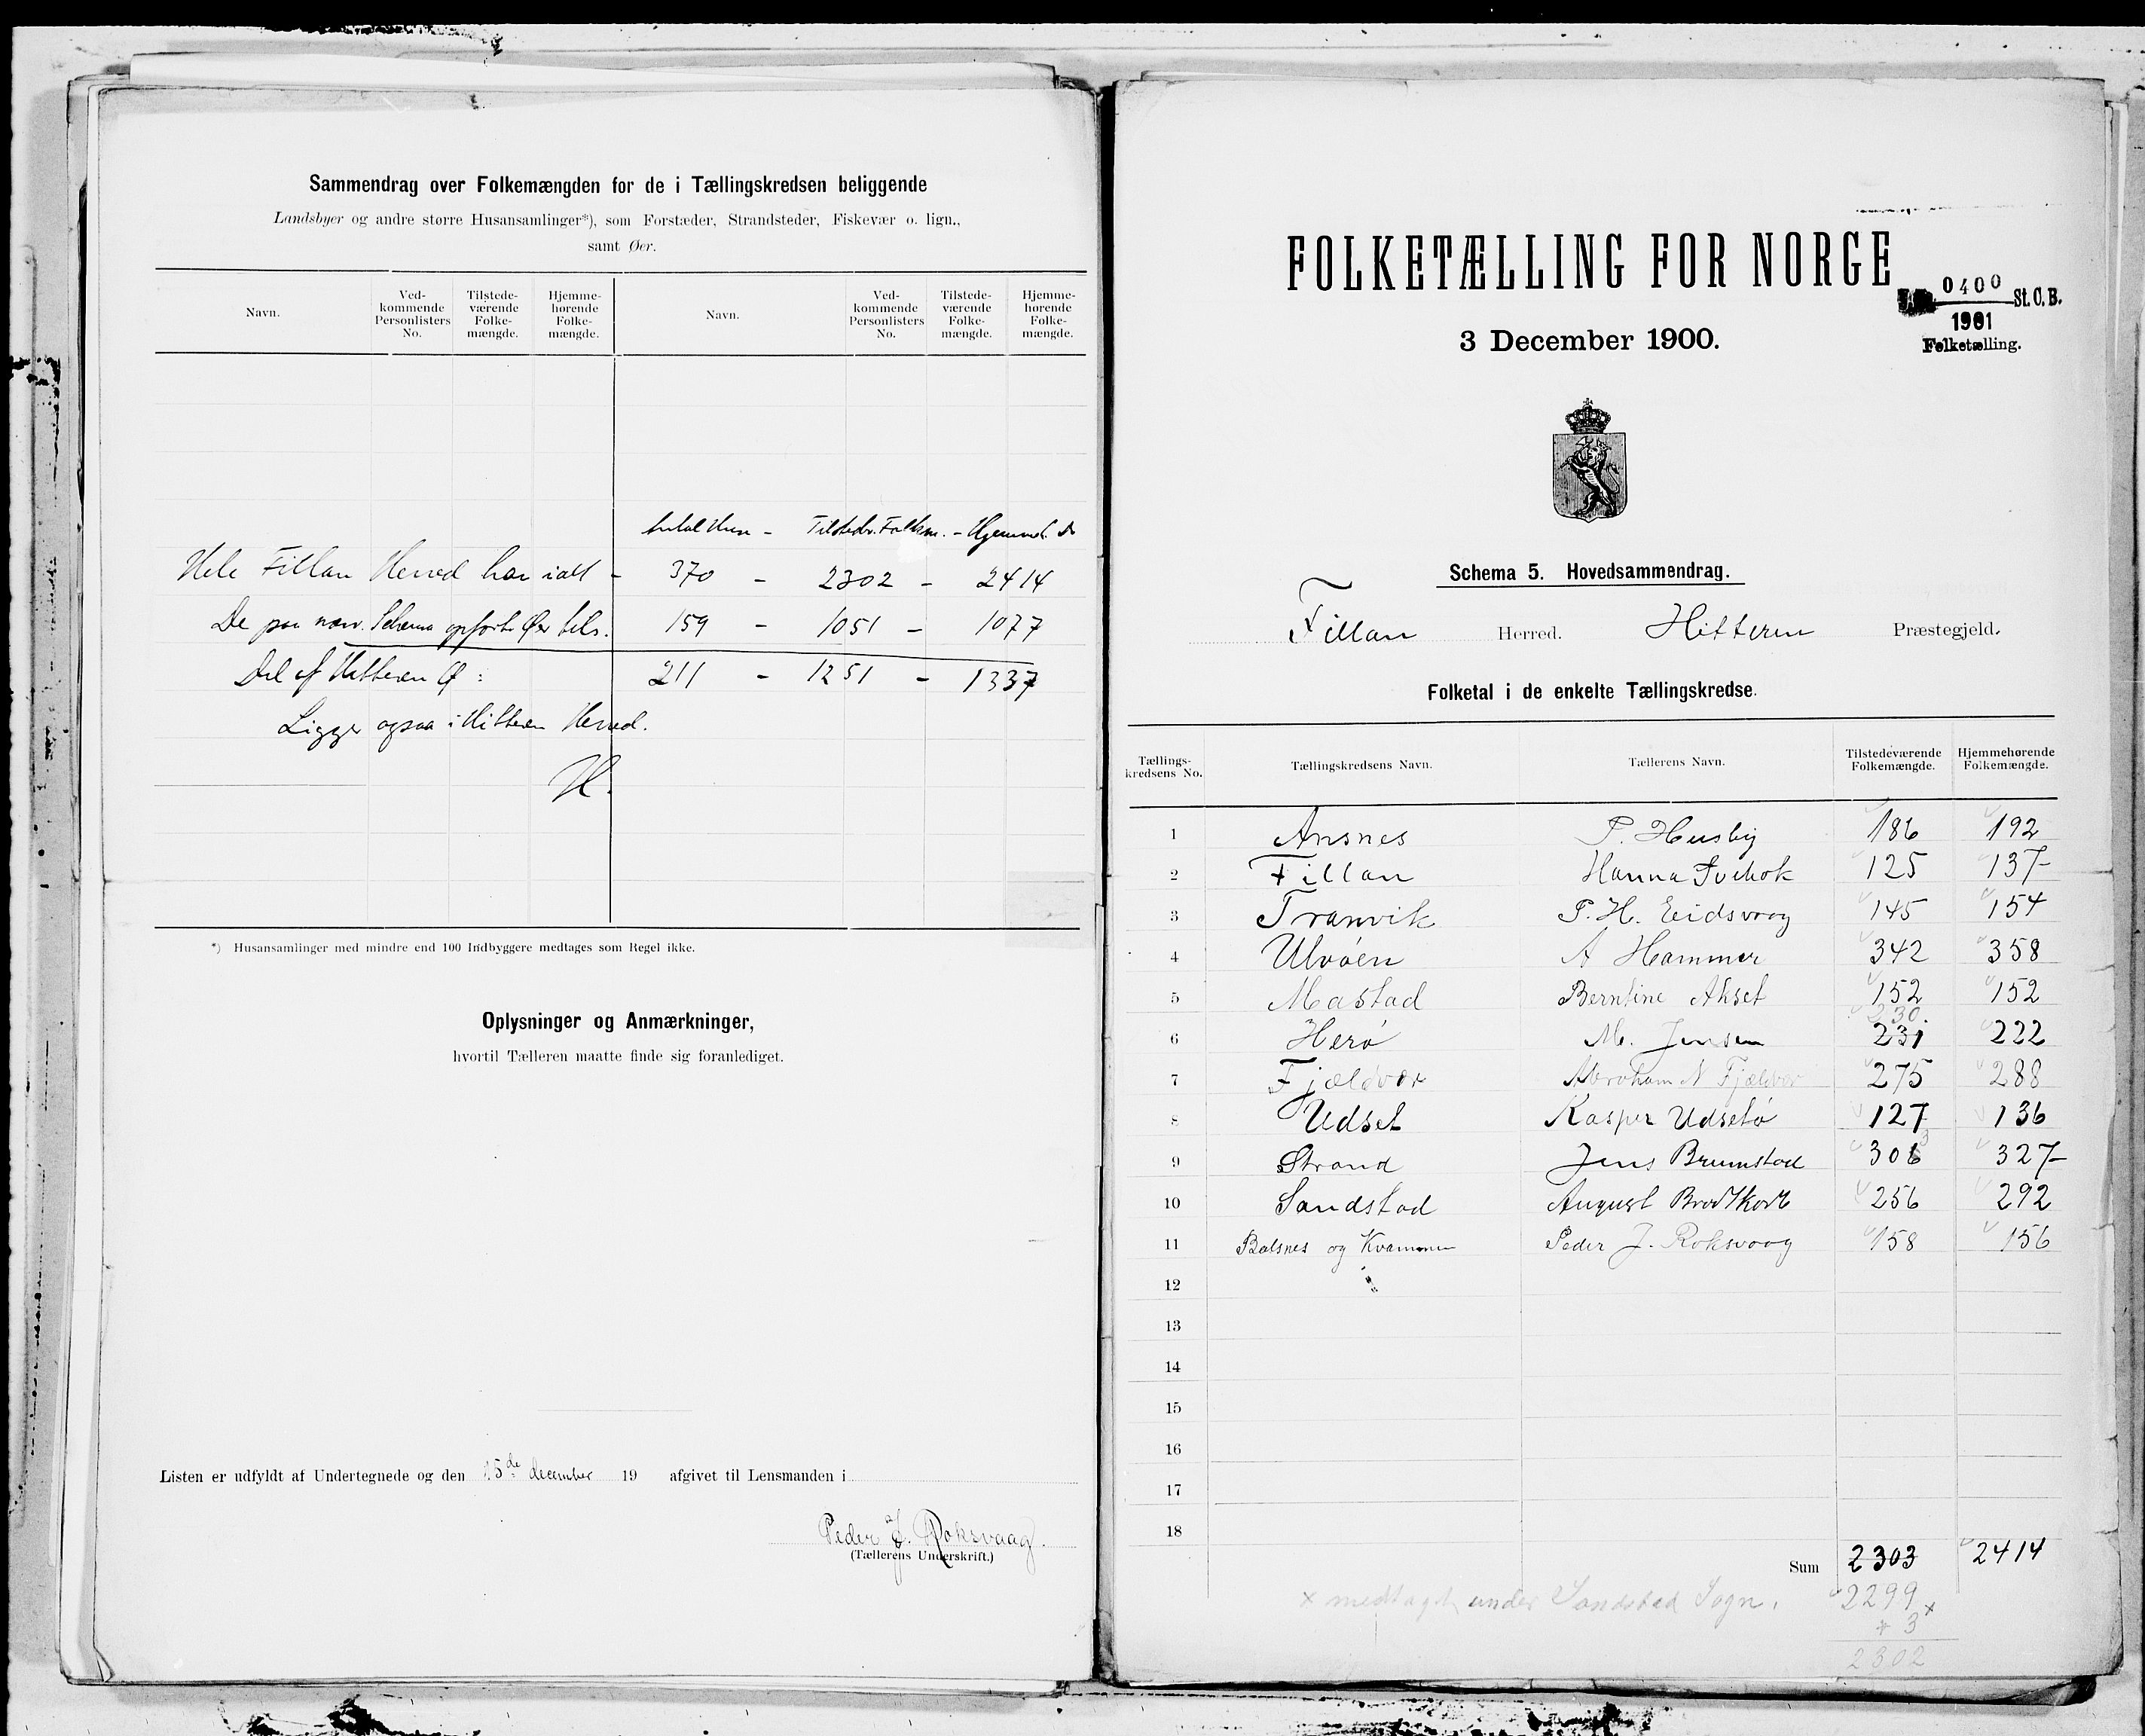 Sammendrag over Folkemængden for de i Tællingskredsen beliggende
Landsbyer og andre større Husansamlinger*), som Forstæder, Strandsteder, Fiskevær o. lign.,
samt Øer.
Navn. Ved-kommende Personlisters No. Tilstede-værende Folke-mængde. Hjemme-hørende Folke-mængde. Navn. Ved-kommende Personlisters No. Tilstede-værende Folke-mængde. Hjemme-hørende Folke-mængde.
Hele Fillan Herred har ialt - 370 - 2302 - 2414
De paa nærv. Schema opførte Øer 159 - 1051 - 1077
Del af Hitteren Ø : 211 - 1251 - 1337
Ligger ogsaa i Hitteren Herred.
H.
*) Husansamlinger med mindre end 100 Indbyggere medtages som Regel ikke.
Oplysninger og Anmærkninger,
hvortil Tælleren maatte finde sig foranlediget.
Listen er udfyldt af Undertegnede og den 15de december 19 afgivet til Lensmanden i
Peder J. Roksvaag.
(Tællerens Underskrift.)
FOLKETÆLLING FOR NORGE
0400 St. C. B.
1901
Folketælling.
3 December 1900.
Schema 5. Hovedsammendrag.
Fillan Herred. Hitteren Præstegjeld.
Folketal i de enkelte Tællingskredse.
Tællings-kredsens No. Tællingskredsens Navn. Tællerens Navn. Tilstedeværende Folkemængde. Hjemmehørende Folkemængde.
1 Ansnes P. Husby 186 192
2 Fillan Hanna 125 137
3 Tranvik P. H. Eidsvaag 145 154
4 Ulvøen A Hammer 342 358
5 Mastad Berntine Akset 152 152
230.
6 Herø M. Jensen 231 222
7 Fjældvær Abraham N Fjeldvær 275 288
8 Udset Kasper Udsetø 127 136
9 Strand Jens Brumstad 306 3 327
10 Sandstad August Brodtkorb 256 292
11 Balsnes og Kvammen Peder J. Roksvaag 158 156
12
13
14
15
16
17
18
Sum 2303 2414
x medtagt under Sandstad Sogn. 2299
+ 3 x
2302